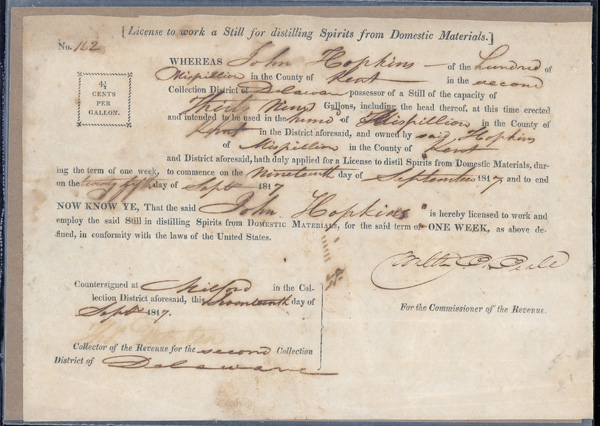 [License to work a Still for distilling Spirits from Domestic Materials.]
No. 162
4½
CENTS
PER
GALLON.
WHEREAS John Hopkins of the Hundred of
Mispillion in the County of Kent in the second
Collection District of Delaware possessor of a Still of the capacity of
Thirty Nine Gallons, including the head thereof, at this time erected
and intended to be used in the Hund of Mispillion in the County of
Kent in the District aforesaid, and owned by said Hopkins
of Mispillion in the County of Kent
and District aforesaid, hath duly applied for a License to distil Spirits from Domestic Materials, dur-
ing the term of one week, to commence on the Nineteenth day of September 1817 and to end
on the twenty fifth day of Sept 1817
NOW KNOW YE, That the said John Hopkins is hereby licensed to work and
employ the said Still in distilling Spirits from DOMESTIC MATERIALS, for the said term of ONE WEEK, as above de-
fined, in conformity with the laws of the United States.
Countersigned at Milford in the Col-
lection District aforesaid, this day of
Sept 1817.
For the Commissioner of the Revenue.
Collector of the Revenue for the second Collection
District of Delaware